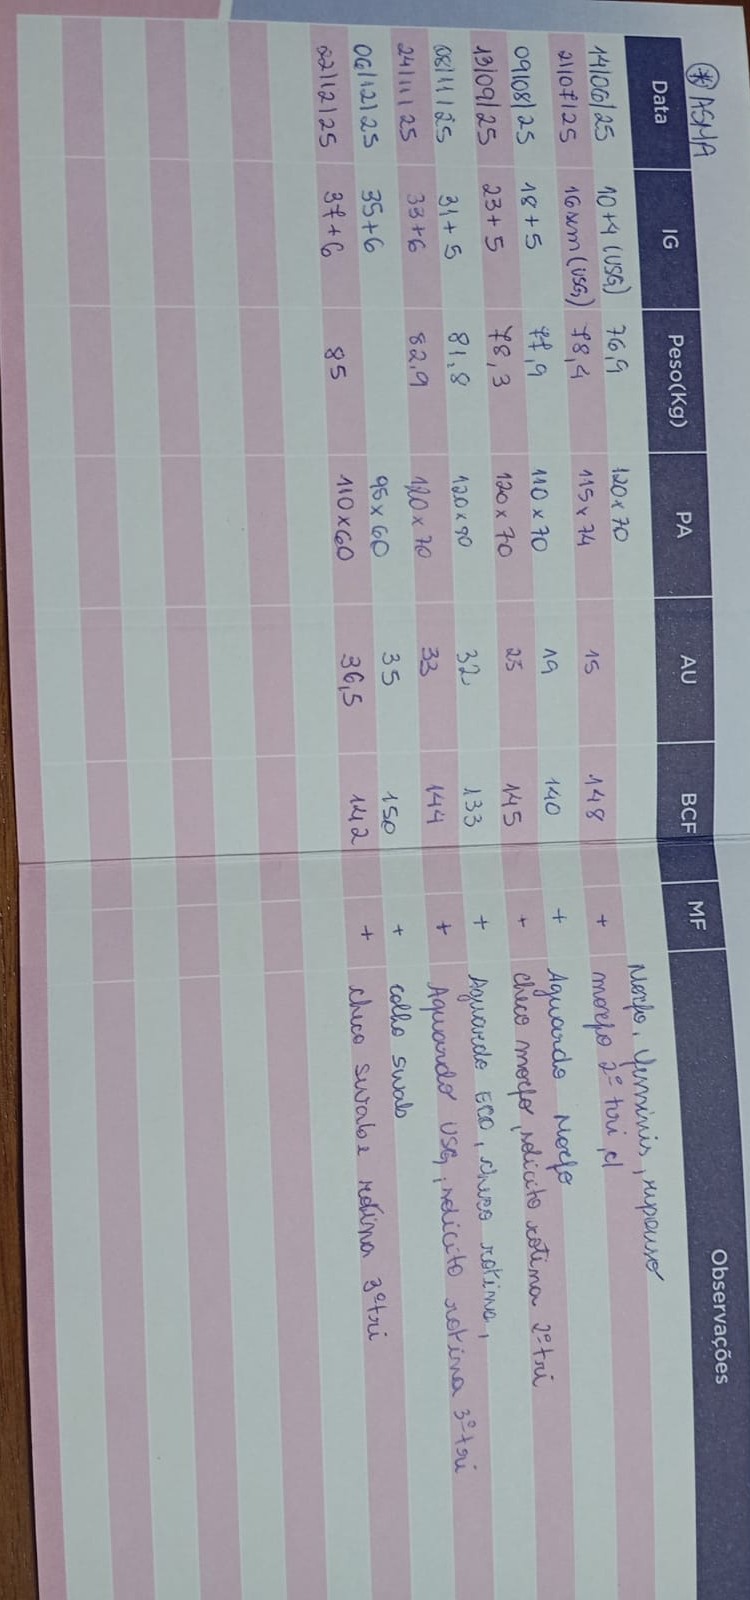 * ASMA
Data IG Peso(Kg) PA AU BCF MF Observações
14/06/25 10+4 (USG) 76,9 120x70 Morfo, Yuminis, repouso
21/07/25 16sem (USG) 78,4 115x74 15 148 + morfo 2º tri, cl
09/08/25 18+5 77,9 110x70 19 140 + Aguardo Morfo
13/09/25 23+5 78,3 120x70 25 145 + checo morfo, solicito rotina 2º tri
08/11/25 31+5 81,8 120x90 32 133 + Aguardo ECO, checo rotina,
24/11/25 33+6 82,9 120x70 33 144 + Aguardo USG, solicito rotina 3º tri
06/12/25 35+6 95x60 35 150 + colho swab
22/12/25 37+6 85 110x60 36,5 142 + checo swab e rotina 3º tri